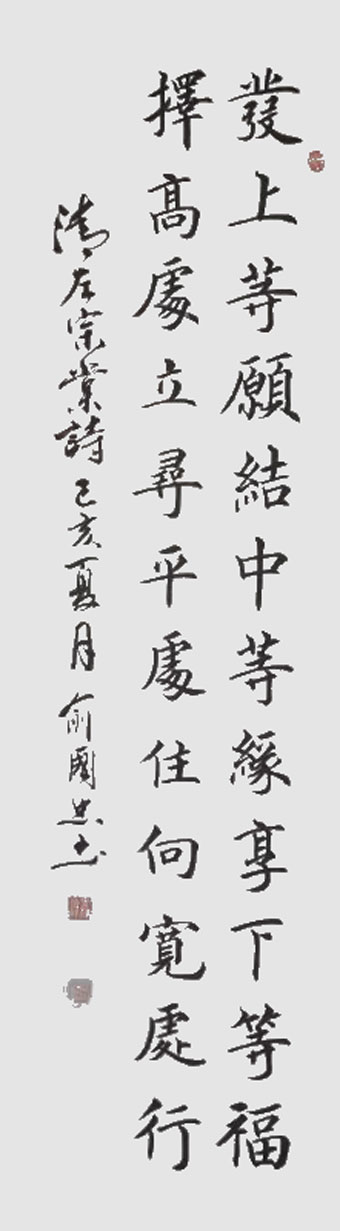 發上等願結中等緣享下等福
擇高處立尋平處住向寬處行
清左宗棠詩己亥夏月俞國忠書